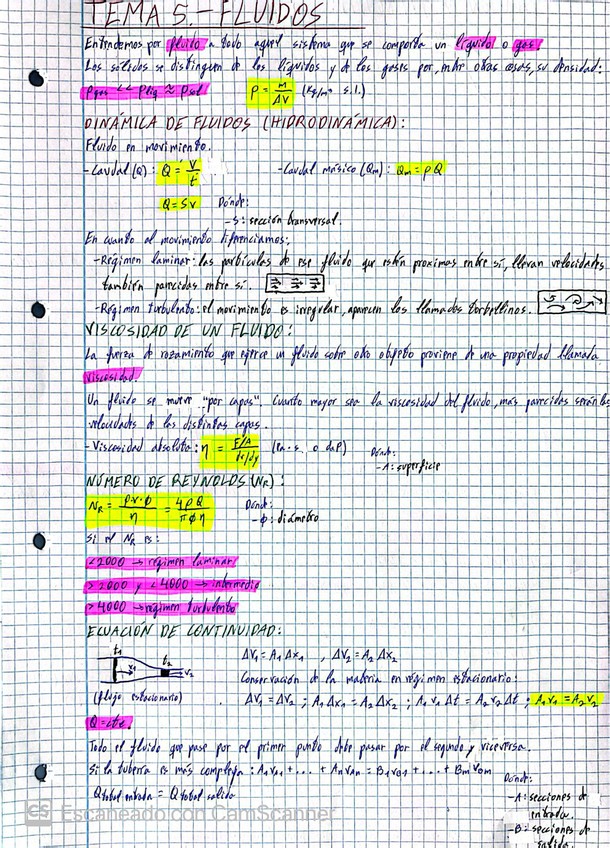 TEMA 5.-FLUIDOS
Entendemos por fluido a todo aquel sistema que se comporta un líquido o gas.
Los sólidos se distinguen de los líquidos y de los gases por, entre otras cosas, su densidad:
ρgas << ρliq ≈ ρsol ρ = m/ΔV (Kg/m³ S.I.)
DINÁMICA DE FLUIDOS (HIDRODINÁMICA):
Fluido en movimiento.
-Caudal (Q): Q = V/t -Caudal másico (Qm): Qm = ρQ
Q = Sv Dónde:
-S: sección transversal.
En cuanto al movimiento diferenciamos:
-Régimen laminar: las partículas de ese fluido que están proximas entre sí, llevan velocidades
también parecidas entre sí.
-Régimen turbulento: el movimiento es irregular, aparecen los llamados torbellinos.
VISCOSIDAD DE UN FLUIDO:
La fuerza de rozamiento que ejerce un fluido sobre otro objeto proviene de una propiedad llamada
viscosidad.
Un fluido se mueve "por capas". Cuanto mayor sea la viscosidad del fluido, más parecidas serán las
velocidades de las distintas capas.
-Viscosidad absoluta: η = F/A / dv/dy (Pa·s. o daP) Dónde:
-A: superficie
NÚMERO DE REYNOLDS (NR):
NR = ρ·v·φ/η = 4ρQ/πφη Dónde:
-φ: diámetro
Si el NR es:
<2000 → régimen laminar
>2000 y <4000 → intermedio
>4000 → régimen turbulento
ECUACIÓN DE CONTINUIDAD:
t1 t2 v1 v2 ΔV1 = A1 Δx1 , ΔV2 = A2 Δx2
Conservación de la materia en régimen estacionario:
(flujo estacionario) ΔV1 = ΔV2 ; A1 Δx1 = A2 Δx2 ; A1 v1 Δt = A2 v2 Δt ; A1v1 = A2v2
Q = cte.
Todo el fluido que pase por el primer punto debe pasar por el segundo y viceversa.
Si la tubería es más compleja: A1vA1 + ... + AnvAn = B1vB1 + ... + BmvBm
Dónde:
Qtotal entrada = Qtotal salida
-A: secciones de
entrada.
-B: secciones de
salida.
CS Escaneado con CamScanner